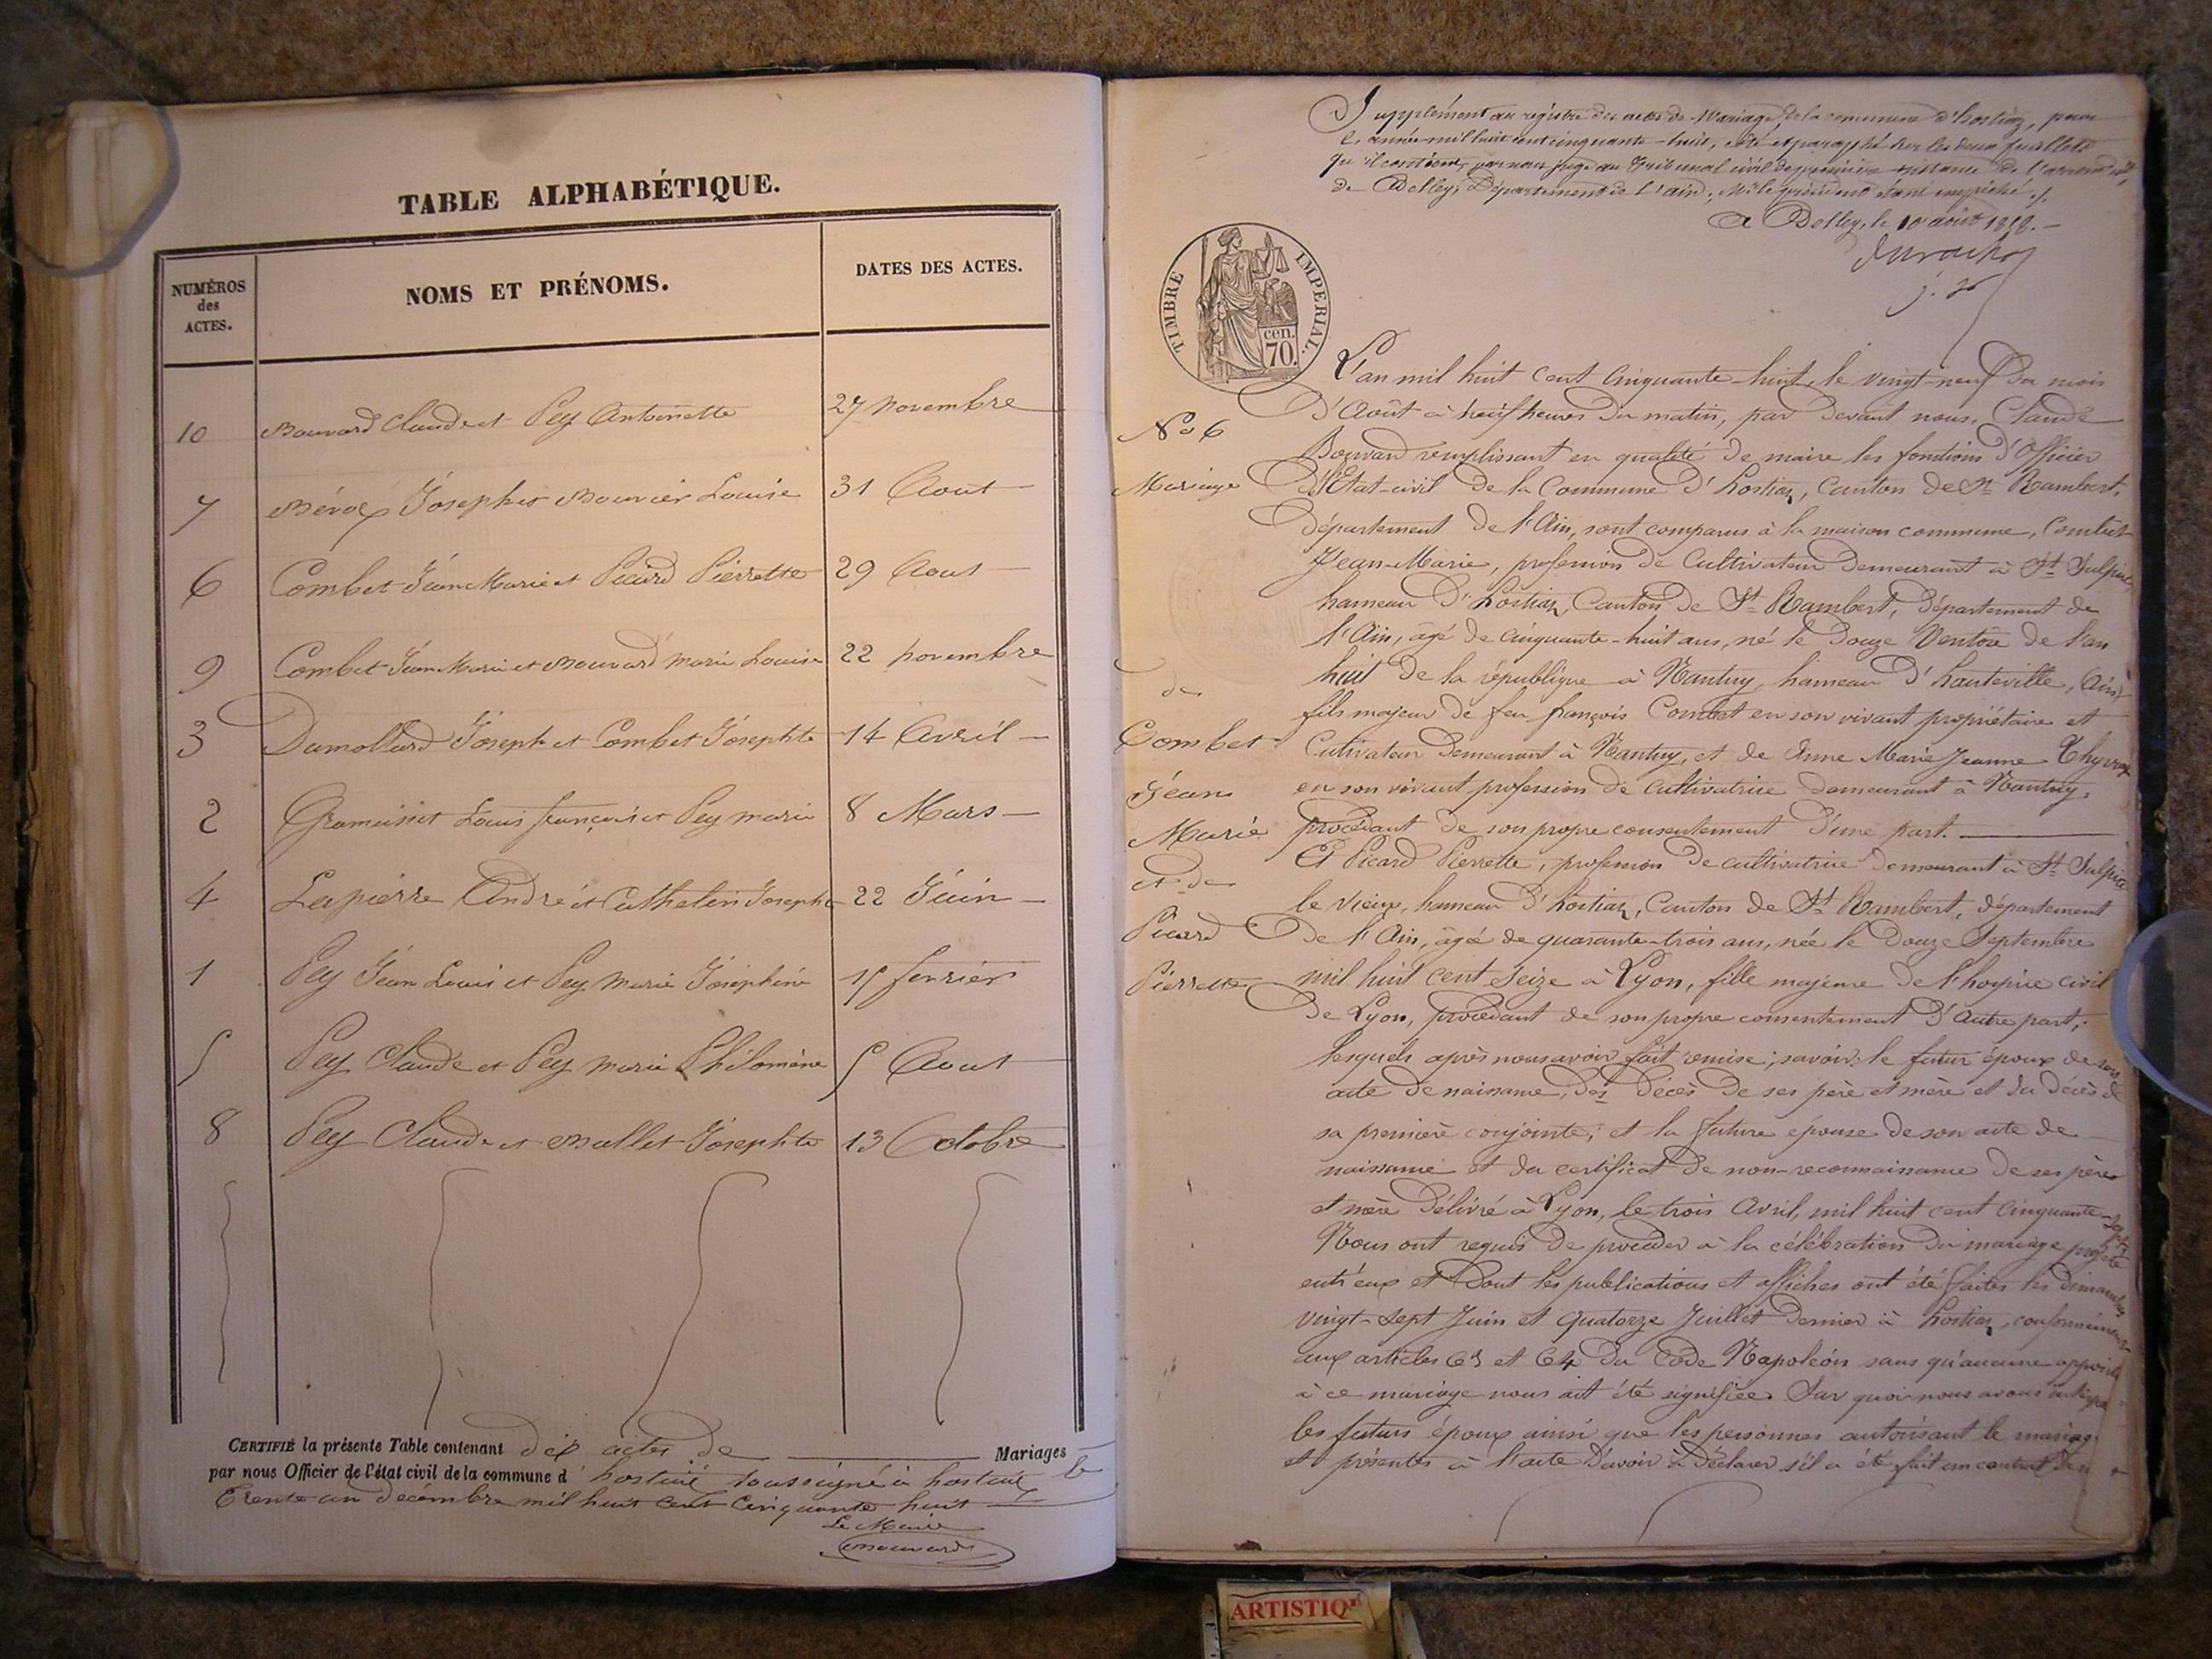 TABLE ALPHABÉTIQUE.
NUMÉROS
des
ACTES.
NOMS ET PRÉNOMS.
DATES DES ACTES.
10 Bouvard Claude et Pey Antoinette 27 novembre
7 Joseph et Bouvier Louise 31 Aout
6 Combet Jean Marie et Picard Pierrette 29 Aout
9 Combet Jean Marie et Bouvard Marie Louise 22 novembre
3 Dumollard Joseph et Combet Josephte 14 Avril
2 Louis françois et Pey marie 8 Mars
4 Lapierre André et Cathelin Josephte 22 Juin
1 Pey Jean Louis et Pey Marie Joséphine 15 fevrier
5 Pey Claude et Pey Marie Philomène 5 Aout
8 Pey Claude et Mallet Josephte 13 Octobre
CERTIFIÉ la présente Table contenant dix actes de Mariages
par nous Officier de l'état civil de la commune d' hostiaz soussigné à hostiaz le
Trente un decembre mil huit cent cinquante huit
Le Maire
Bouvard
Supplément au registre des actes de Mariage de la commune d'hostiaz, pour
l'année mil huit cent cinquante-huit, coté et paraphé sur les deux feuillets
qu'il contient, par nous juge au Tribunal civil de première instance de l'arrondt
de Belley, Département de l'ain, Mr le président étant empêché ./.
A Belley, le 10 août 1858.
TIMBRE IMPERIAL.
cen.
70.
L'an mil huit cent cinquante-huit, le vingt-neuf du mois
d'Août à neuf heures du matin, par devant nous, Claude
No 6
Bouvard remplissant en qualité de maire les fonctions d'Officier
Mariage
d'Etat-civil de la Commune d'hostiaz, Canton de St Rambert,
Département de l'Ain, sont comparus à la maison commune, Combet
Jean-Marie, profession de Cultivateur demeurant à St Sulpice,
hameau d'hostiaz, Canton de St Rambert, département de
l'Ain, âgé de cinquante-huit ans, né le douze Ventôse de l'an
de
huit de la république à Nantuy, hameau d'hauteville, (Ain)
fils majeur de feu françois Combet en son vivant propriétaire et
Combet
Cultivateur demeurant à Nantuy, et de Anne Marie Jeanne
Jean
en son vivant profession de cultivatrice demeurant à Nantuy,
Marie
procédant de son propre consentement d'une part.
et de
Et Picard Pierrette, profession de cultivatrice demeurant à St Sulpice
le Vieux, hameau d'hostiaz, Canton de St Rambert, département
Picard
de l'Ain, âgée de quarante-trois ans, née le douze Septembre
Pierrette
mil huit cent seize à Lyon, fille majeure de l'hospice civil
de Lyon, procédant de son propre consentement d'autre part,
lesquels après nous avoir fait remise; savoir: le futur époux de son
acte de naissance, des décès de ses père et mère et du décès de
sa première conjointe; et la future épouse de son acte de
naissance et du certificat de non-reconnaissance de ses père
et mère délivré à Lyon, le trois Avril, mil huit cent cinquante-sept,
Nous ont requis de procéder à la célébration du mariage projeté
entr'eux et dont les publications et affiches ont été faites les dimanches
vingt-sept Juin et quatorze Juillet dernier à hostiaz, conformément
aux articles 63 et 64 du Code Napoléon sans qu'aucune
à ce mariage nous ait été signifiée. Sur quoi nous avons
les futurs époux ainsi que les personnes autorisant le mariage
et présentes à l'acte d'avoir à déclarer s'il a été fait un contrat de
ARTISTIQ